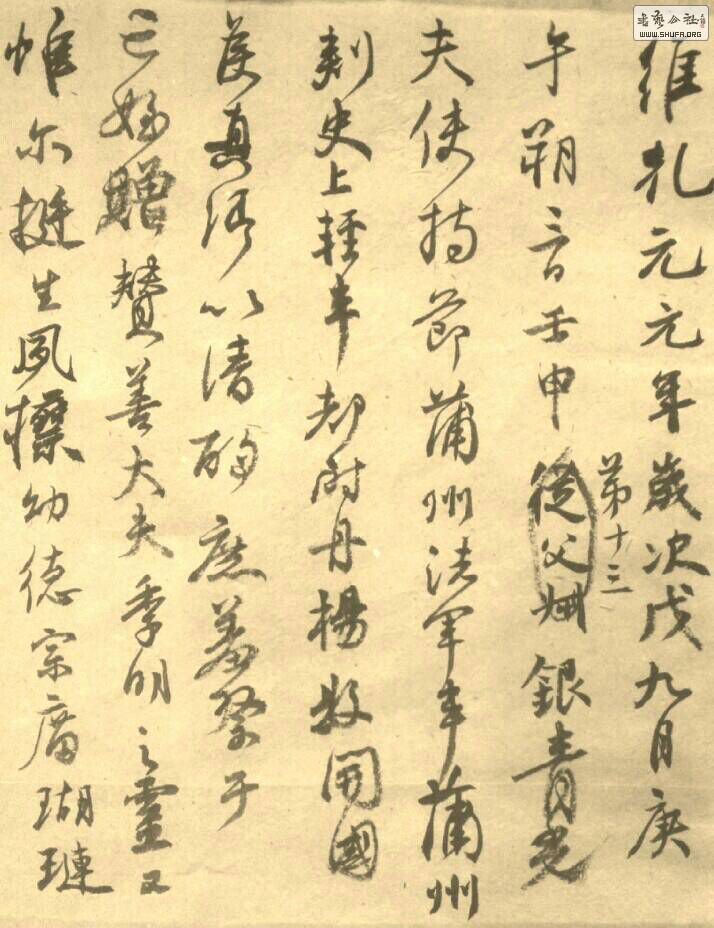 書藝公社
WWW.SHUFA.ORG
維乾元元年歲次戊九月庚
午朔三日壬申從父叔銀青光
第十三
夫使持節蒲州諸軍事蒲州
刺史上輕車都尉丹楊縣開國
侯真卿以清酌庶羞祭于
亡姪贈贊善大夫季明之靈曰
惟尔挺生夙標幼德宗廟瑚璉